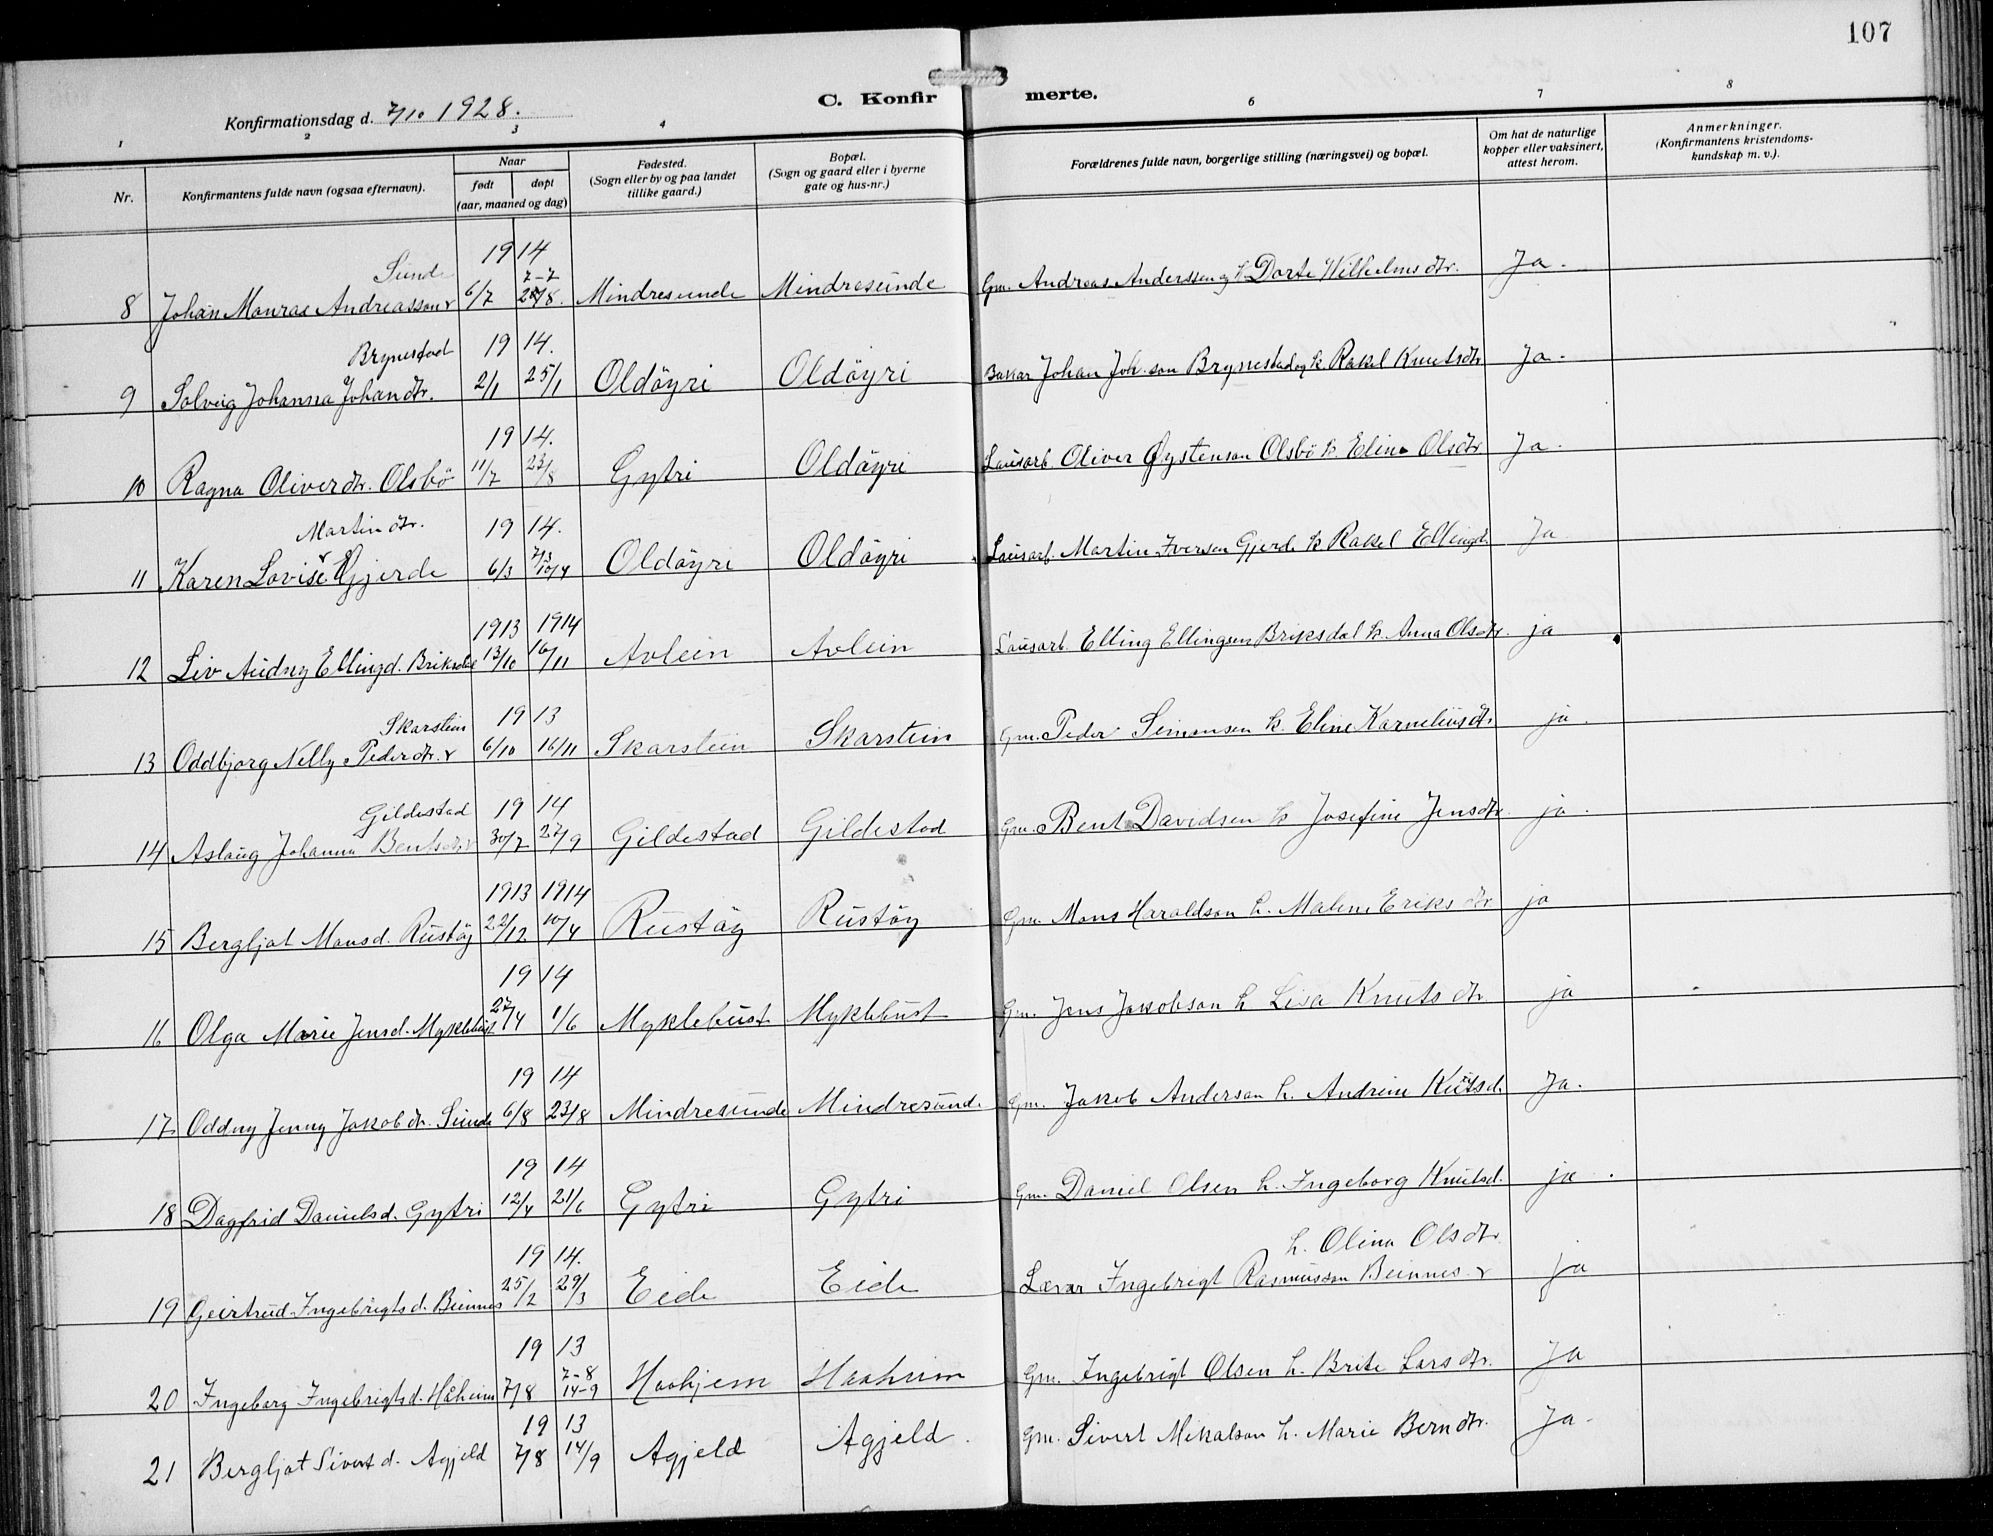 107
C. Konfirmerte.
Konfirmationsdag d. 7/10 1928.
1 2 3 4 6 7 8
Nr.
Konfirmantens fulde navn (ogsaa efternavn).
Naar
født døpt
(aar, maaned og dag)
Fødested.
(Sogn eller by og paa landet
tillike gaard.)
Bopæl.
(Sogn og gaard eller i byerne
gate og hus-nr.)
Forældrenes fulde navn, borgerlige stilling (næringsvei) og bopæl.
Om hat de naturlige
kopper eller vaksinert,
attest herom.
Anmerkninger.
(Konfirmantens kristendoms-
kundskap m. v.).
Sunde 19 14
7-7
8 Johan Monrae Andreasson 6/7 28/8. Mindresunde Mindresunde Gm. Andreas Anderssen og h. Dorte Wilhelmsdtr. Ja.
Brynestad 19 14.
9 Solveig Johanna Johandtr. 2/1 25/1 Oldöyri Oldöyri Bakar Johan Joh.son Brynestad og h. Rakel Knutsdtr Ja.
19 14.
10 Ragna Oliverdtr. Olsbö 11/7 23/8 Gytri Oldöyri Lausarb. Oliver Øystenson Olsbö h. Eline Olsdtr Ja.
Martindtr. 19 14.
11 Karen Lovise Gjerde 6/3 7/3 10/4 Oldöyri Oldöyri Lausarb. Martin Iversen Gjerde h. Rakel Ellingdtr. Ja
1913 1914
12 Liv Audny Ellingd. Briksdal 13/10 16/11 Avlein Avlein Lausarb. Elling Ellingsen Briksdal h. Anna Olsdtr. ja
Skarstein 19 13
13 Oddbjorg Nelly Pederdtr. 6/10 16/11 Skarstein Skarstein Gm. Peder Simonsen h. Eline Korneliusdtr ja.
Gildestad 19 14
14 Aslaug Johanna Bentsdtr 30/7 27/9 Gildestad Gildestad Gm. Bent Davidsen h. Josefine Jensdtr. ja.
1913 1914
15 Bergljot Monsd. Rustöy 22/12 10/4 Rustöy Rustöy Gm. Mons Haraldson h. Malene Eriksdtr ja
19 14
16 Olga Marie Jensd. Myklebust 27/4 1/6 Myklebust Myklebust Gm. Jens Jakobson h. Lisa Knutsdtr. ja
19 14
17 Oddny Jenny Jakobdtr. Sunde 6/8 23/8 Mindresunde Mindresunde Gm. Jakob Anderson h. Andrine Knutsd. Ja.
19 14
18 Dagfrid Danielsd. Gytri 12/4 21/6 Gytri Gytri Gm. Daniel Olsen h. Ingeborg Knutsd. ja.
19 14. h. Olina Olsdtr.
19 Geirtrud Ingebrigtsd. Beinnes 25/2 29/3 Eide Eide Lærar Ingebrigt Rasmusson Beinnes ja
19 13
7-8
20 Ingeborg Ingebrigtsd. Haheim 7/8 14-9 Haahjem Haaheim Gm. Ingebrigt Olsen h. Brite Larsdtr. Ja
19 13
21 Bergljot Sivertd. Agjeld 7/8 14/9 Agjeld Agjeld. Gm. Sivert Mikalson h. Marie Berndtr. Ja.